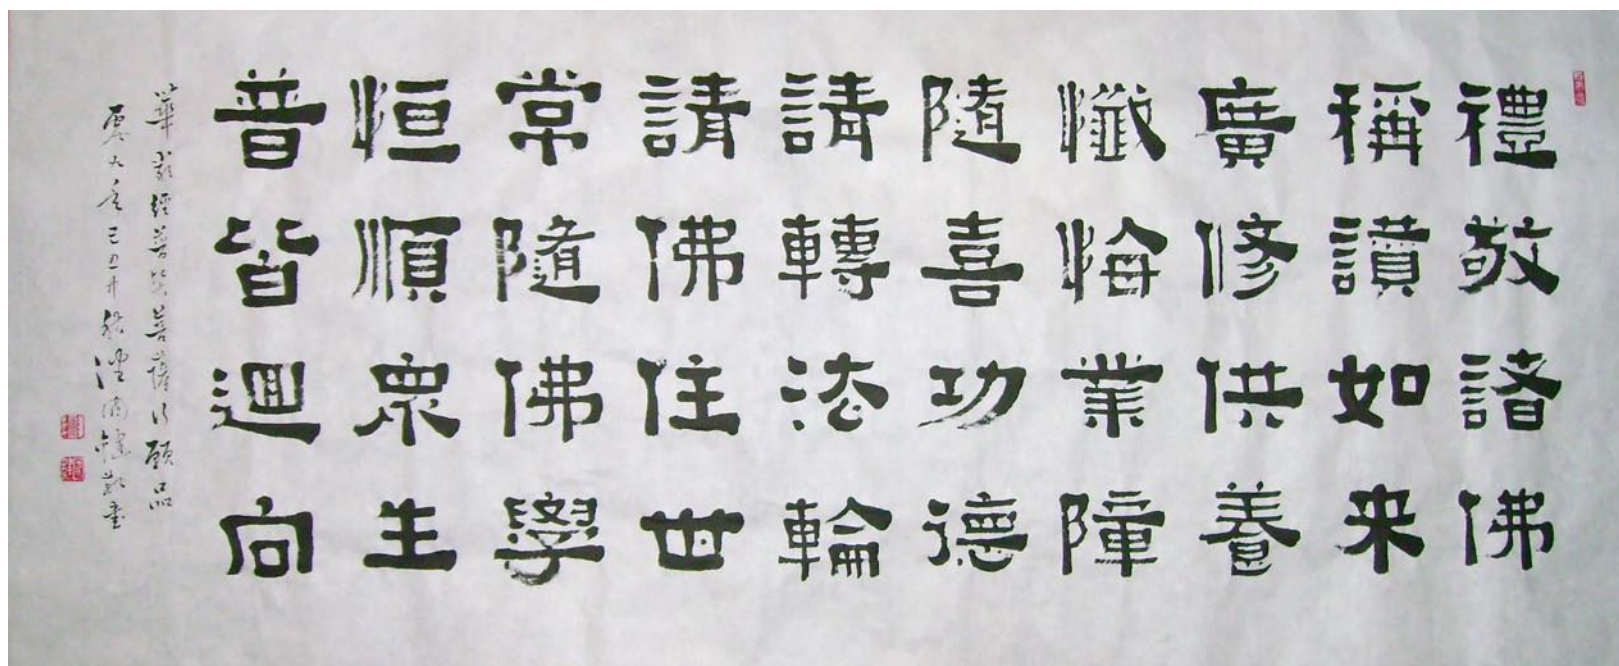 禮敬諸佛
稱讚如来
廣修供養
懺悔業障
隨喜功德
請轉法輪
請佛住世
常隨佛學
恒順眾生
普皆迴向
華嚴經普賢菩薩行願品
己丑年